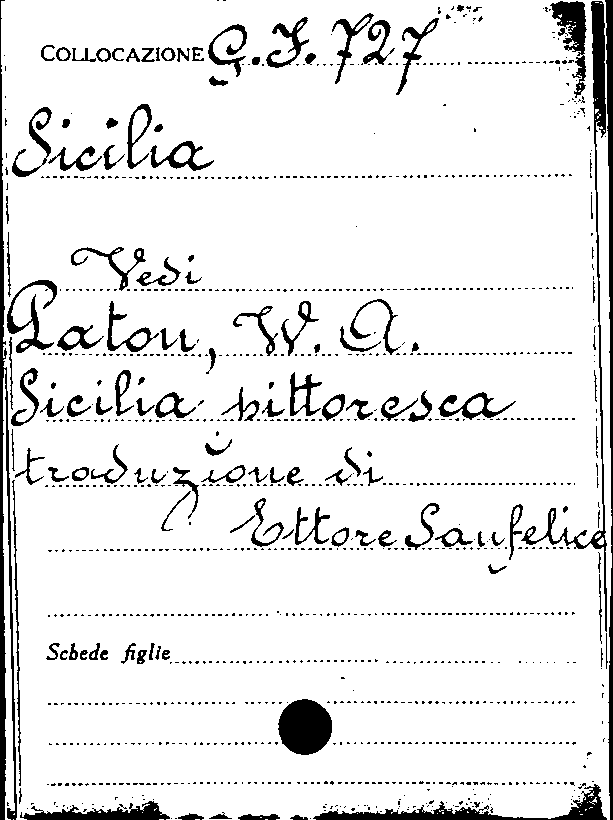 COLLOCAZIONE G.F. 727
Sicilia
Vedi
Paton, W. A.
Sicilia pittoresca
traduzione di
Ettore Sanfelice
Schede figlie